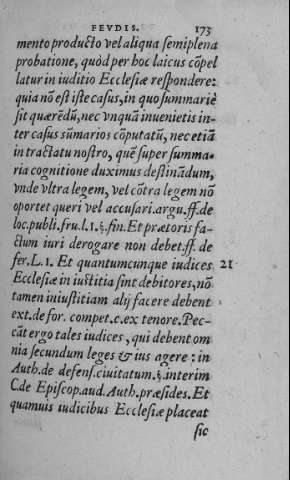 FEVDIS. 173
mento producto vel aliqua semiplena
probatione, quòd per hoc laicus cõpel
latur in iuditio Ecclesiæ respondere:
quia nõ est iste casus, in quo summariè
sit quærẽdũ, nec vnquã inuenietis in-
ter casus sũmarios cõputatũ, nec etiã
in tractatu nostro, quẽ super summa-
ria cognitione duximus destinãdum,
vnde vltra legem, vel cõtra legem nõ
oportet queri vel accusari. argu. ff. de
loc. publi. fru. l. 1. §. fin. Et prætoris fa-
ctum iuri derogare non debet. ff. de
fer. L. 1. Et quantumcunque iudices 21
Ecclesiæ in iustitia sint debitores, nõ
tamen iniustitiam alij facere debent
ext. de for. compet. c. ex tenore. Pec-
cãt ergo tales iudices, qui debent om
nia secundum leges & ius agere: in
Auth. de defens. ciuitatum. §. interim
C. de Episcop. aud. Auth. præsides. Et
quamuis iudicibus Ecclesiæ placeat
sic